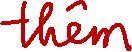 thêm